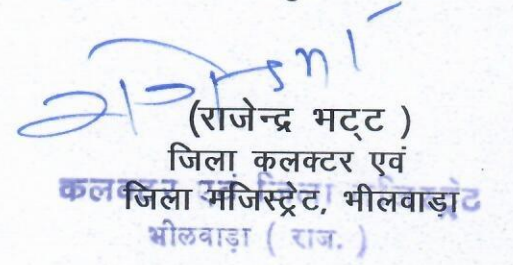 (राजेन्द्र भट्ट )
जिला कलक्टर एवं
जिला मजिस्ट्रेट, भीलवाड़ा
भीलवाड़ा ( राज. )